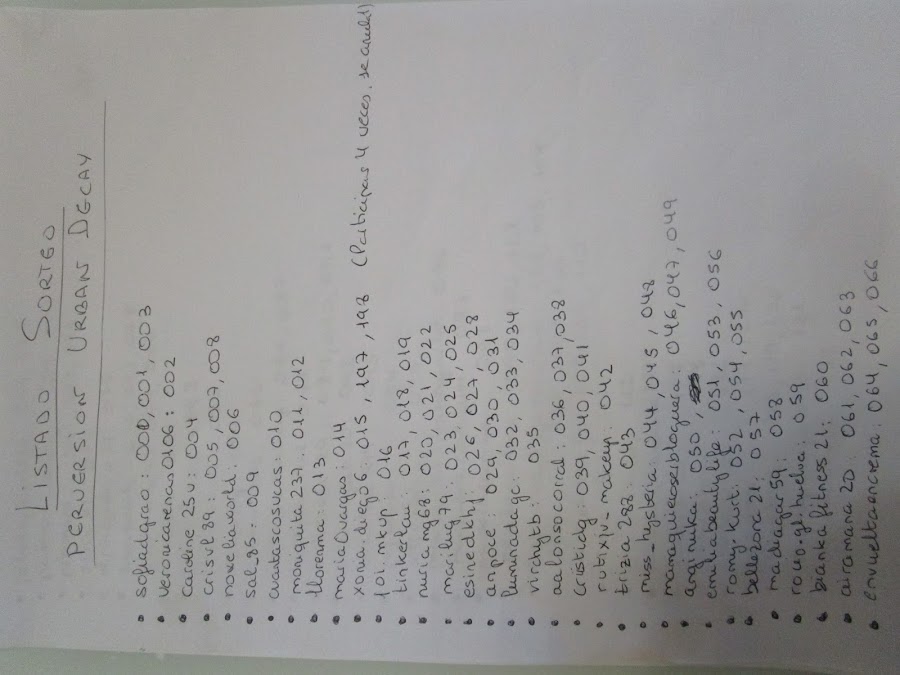 LISTADO SORTEO
PERVERSION URBAN DECAY
• sofiadgro: 000, 001, 003
• veronicarenas0106: 002
• caroline 25v: 004
• crisvl89: 005, 007, 008
• noxeliaworld: 006
• sal_85: 009
• cuantascosucas: 010
• moniquita 237: 011, 012
• llorenma: 013
• mariaOvargas: 014
• xoma.diego6: 015, 197, 198 (Participas 4 veces, se anula 1)
• loi.mkup 016
• tinkerlau: 017, 018, 019
• nuriamg68: 020, 021, 022
• marilug79: 023, 024, 025
• esinedkhj: 026, 027, 028
• anpoce: 029, 030, 031
• lununadagc: 032, 033, 034
• virchytb: 035
• aalonsocorral: 036, 037, 038
• cristichg: 039, 040, 041
• rubixiv_makeup: 042
• trizia 288: 043
• miss_hysteria: 044, 045, 048
• mamaquieroserbloguera: 046, 047, 049
• anginuka: 050,
• emfvabeautylife: 051, 053, 056
• romy.kwt: 052, 054, 055
• bellezona 21: 057
• madragar59: 058
• rocio.gl.huelva: 059
• bianka fitness 21: 060
• airamana 20: 061, 062, 063
• envueltaencrema: 064, 065, 066